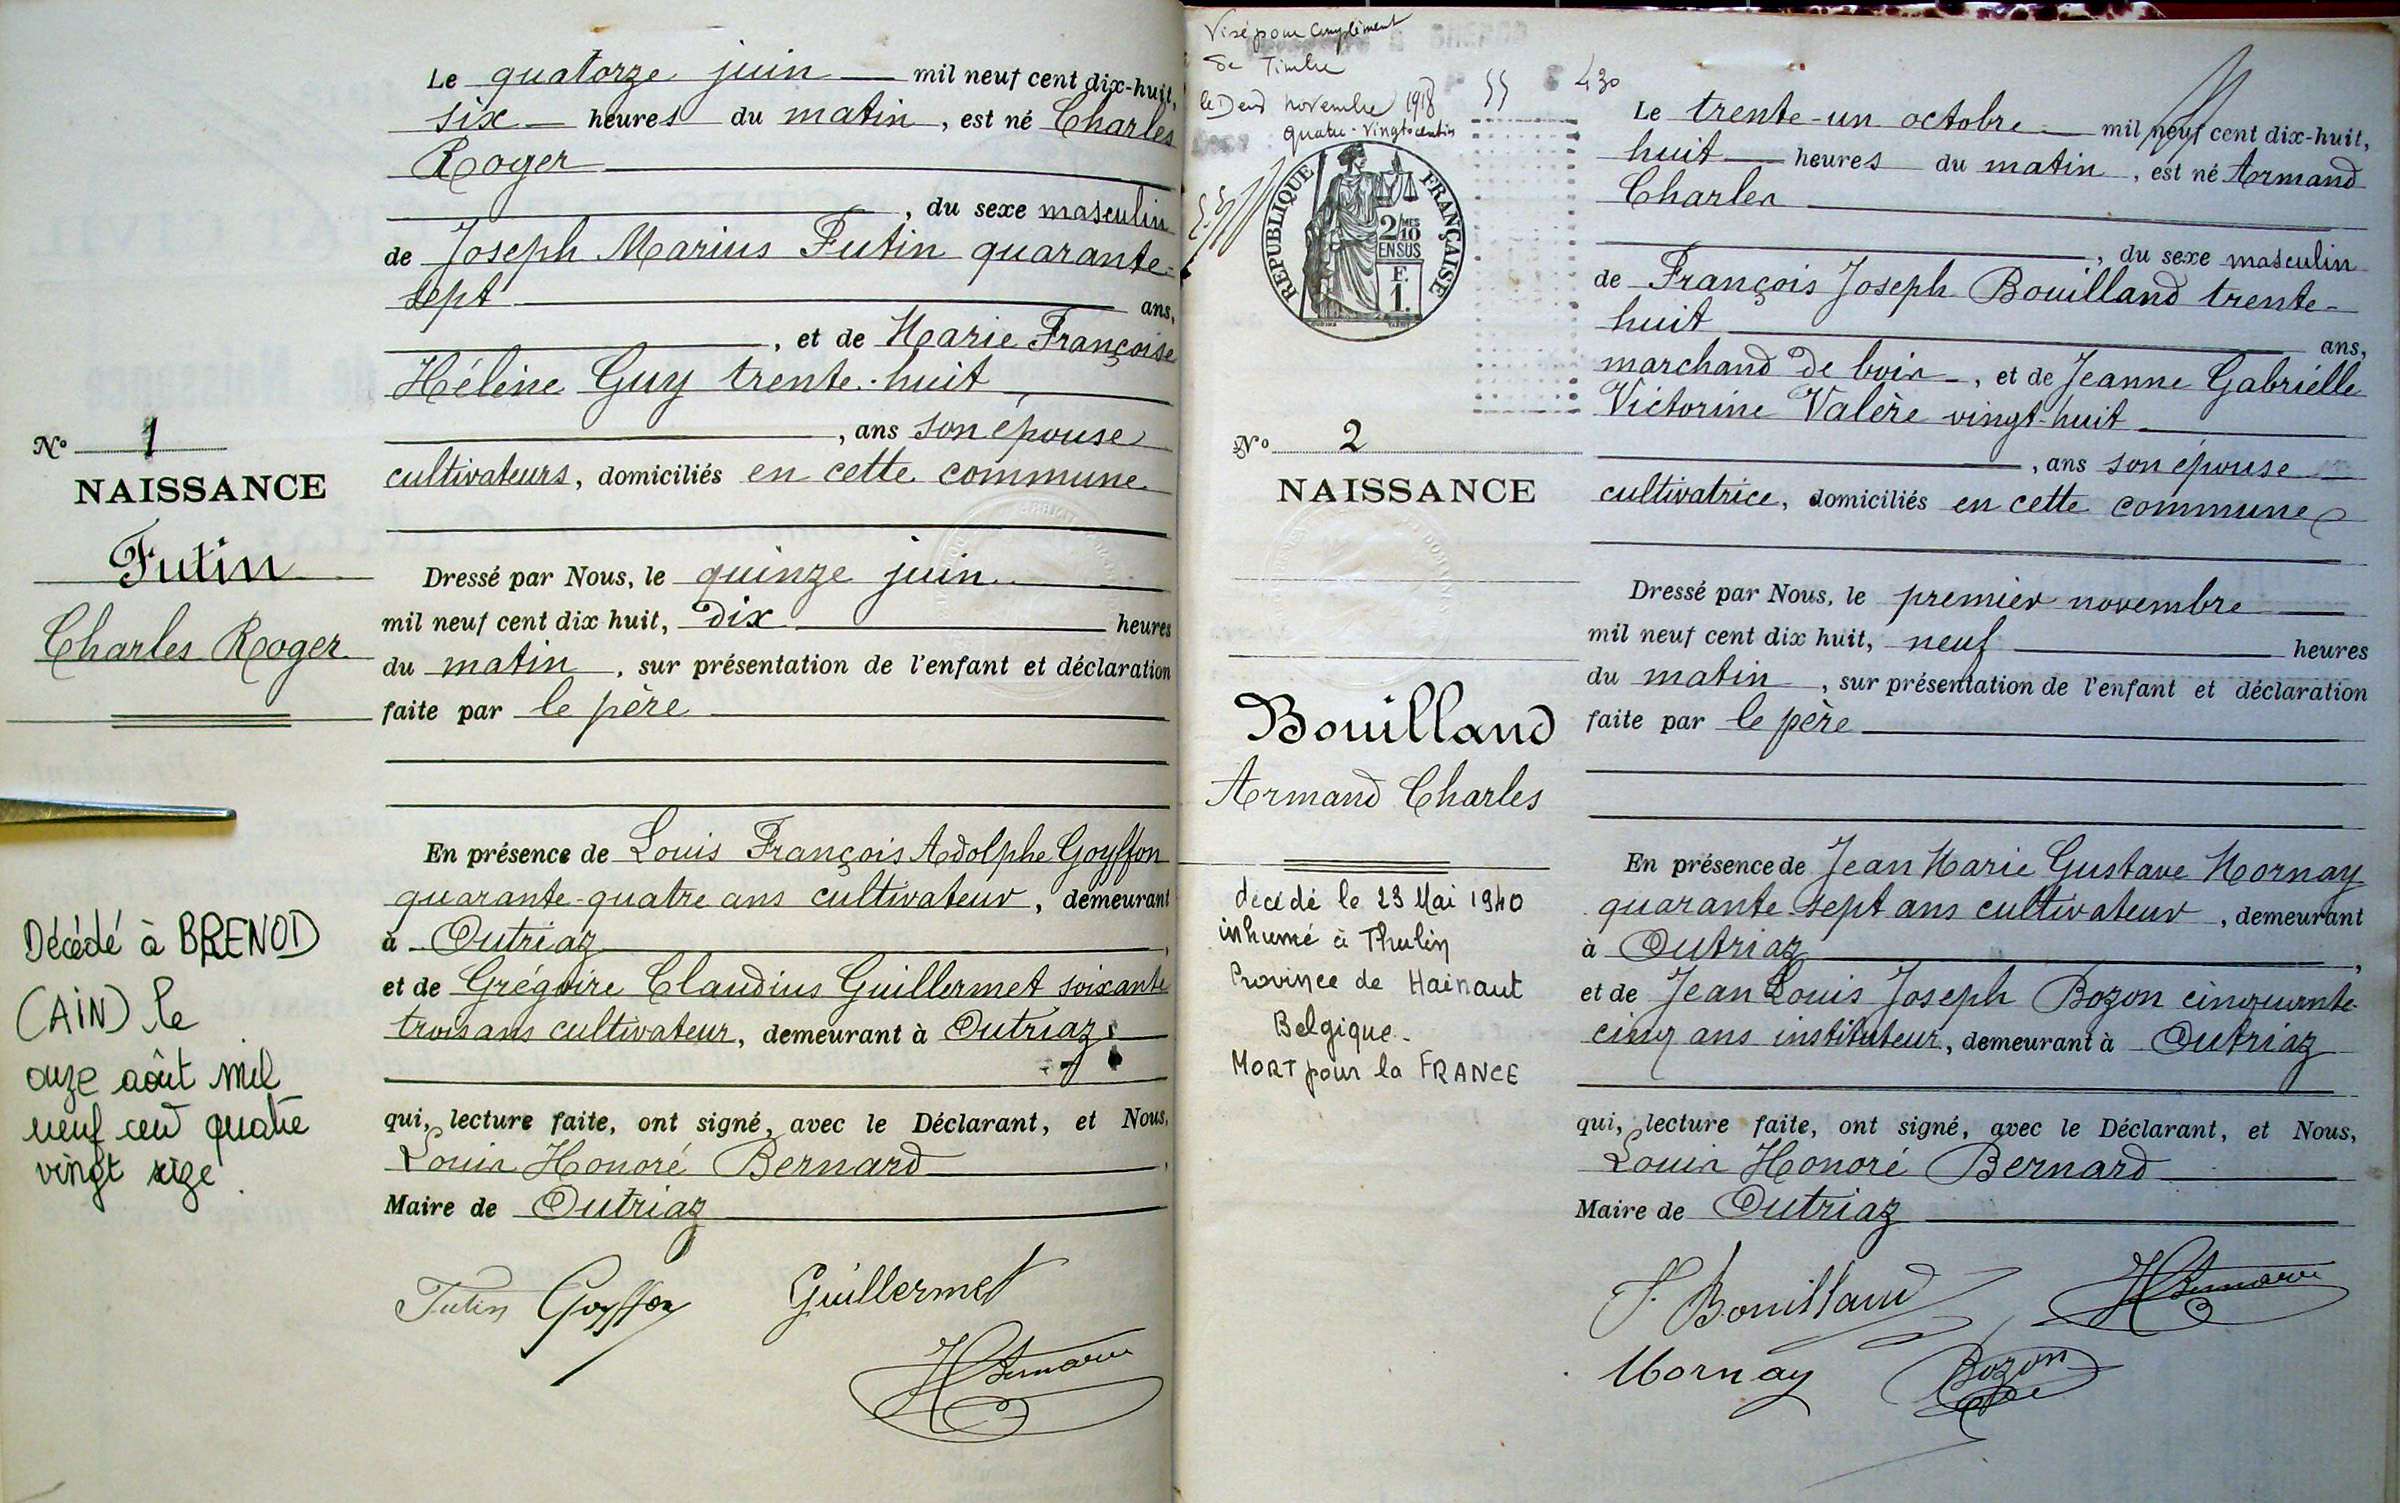 Le quatorze juin mil neuf cent dix-huit,
six heures du matin, est né Charles
Roger
, du sexe masculin
de Joseph Marius Futin quarante-
sept ans,
, et de Marie Françoise
Hélène Guy trente-huit
, ans son épouse
cultivateurs, domiciliés en cette commune
Nº 1
NAISSANCE
Futin
Charles Roger
Dressé par Nous, le quinze juin
mil neuf cent dix huit, dix heures
du matin, sur présentation de l'enfant et déclaration
faite par le père
En présence de Louis François Adolphe Goyffon
quarante-quatre ans cultivateur, demeurant
à Outriaz,
et de Grégoire Claudius Guillermet soixante
trois ans cultivateur, demeurant à Outriaz
Décédé à BRENOD
(AIN) le
onze août mil
neuf cent quatre
vingt seize.
qui, lecture faite, ont signé, avec le Déclarant, et Nous,
Louis Honoré Bernard,
Maire de Outriaz
Futin Goyffon Guillermet
H Bernard
Visé pour complément
de Timbre
le Deux novembre 1918
quatre-vingts centimes
55 430
REPUBLIQUE FRANÇAISE
2/10 MES
EN SUS
F.
1.
Nº 2
NAISSANCE
Bouilland
Armand Charles
décédé le 23 Mai 1940
inhumé à Thulin
Province de Hainaut
Belgique.
MORT pour la FRANCE
Le trente-un octobre mil neuf cent dix-huit,
huit heures du matin, est né Armand
Charles
, du sexe masculin
de François Joseph Bouilland trente-
huit ans,
marchand de bois, et de Jeanne Gabrielle
Victorine Valère vingt-huit
, ans son épouse
cultivatrice, domiciliés en cette commune
Dressé par Nous, le premier novembre
mil neuf cent dix huit, neuf heures
du matin, sur présentation de l'enfant et déclaration
faite par le père
En présence de Jean Marie Gustave Mornay
quarante-sept ans cultivateur, demeurant
à Outriaz,
et de Jean Louis Joseph Bozon cinquante-
cinq ans instituteur, demeurant à Outriaz
qui, lecture faite, ont signé, avec le Déclarant, et Nous,
Louis Honoré Bernard
Maire de Outriaz
F. Bouilland H Bernard
Mornay Bozon